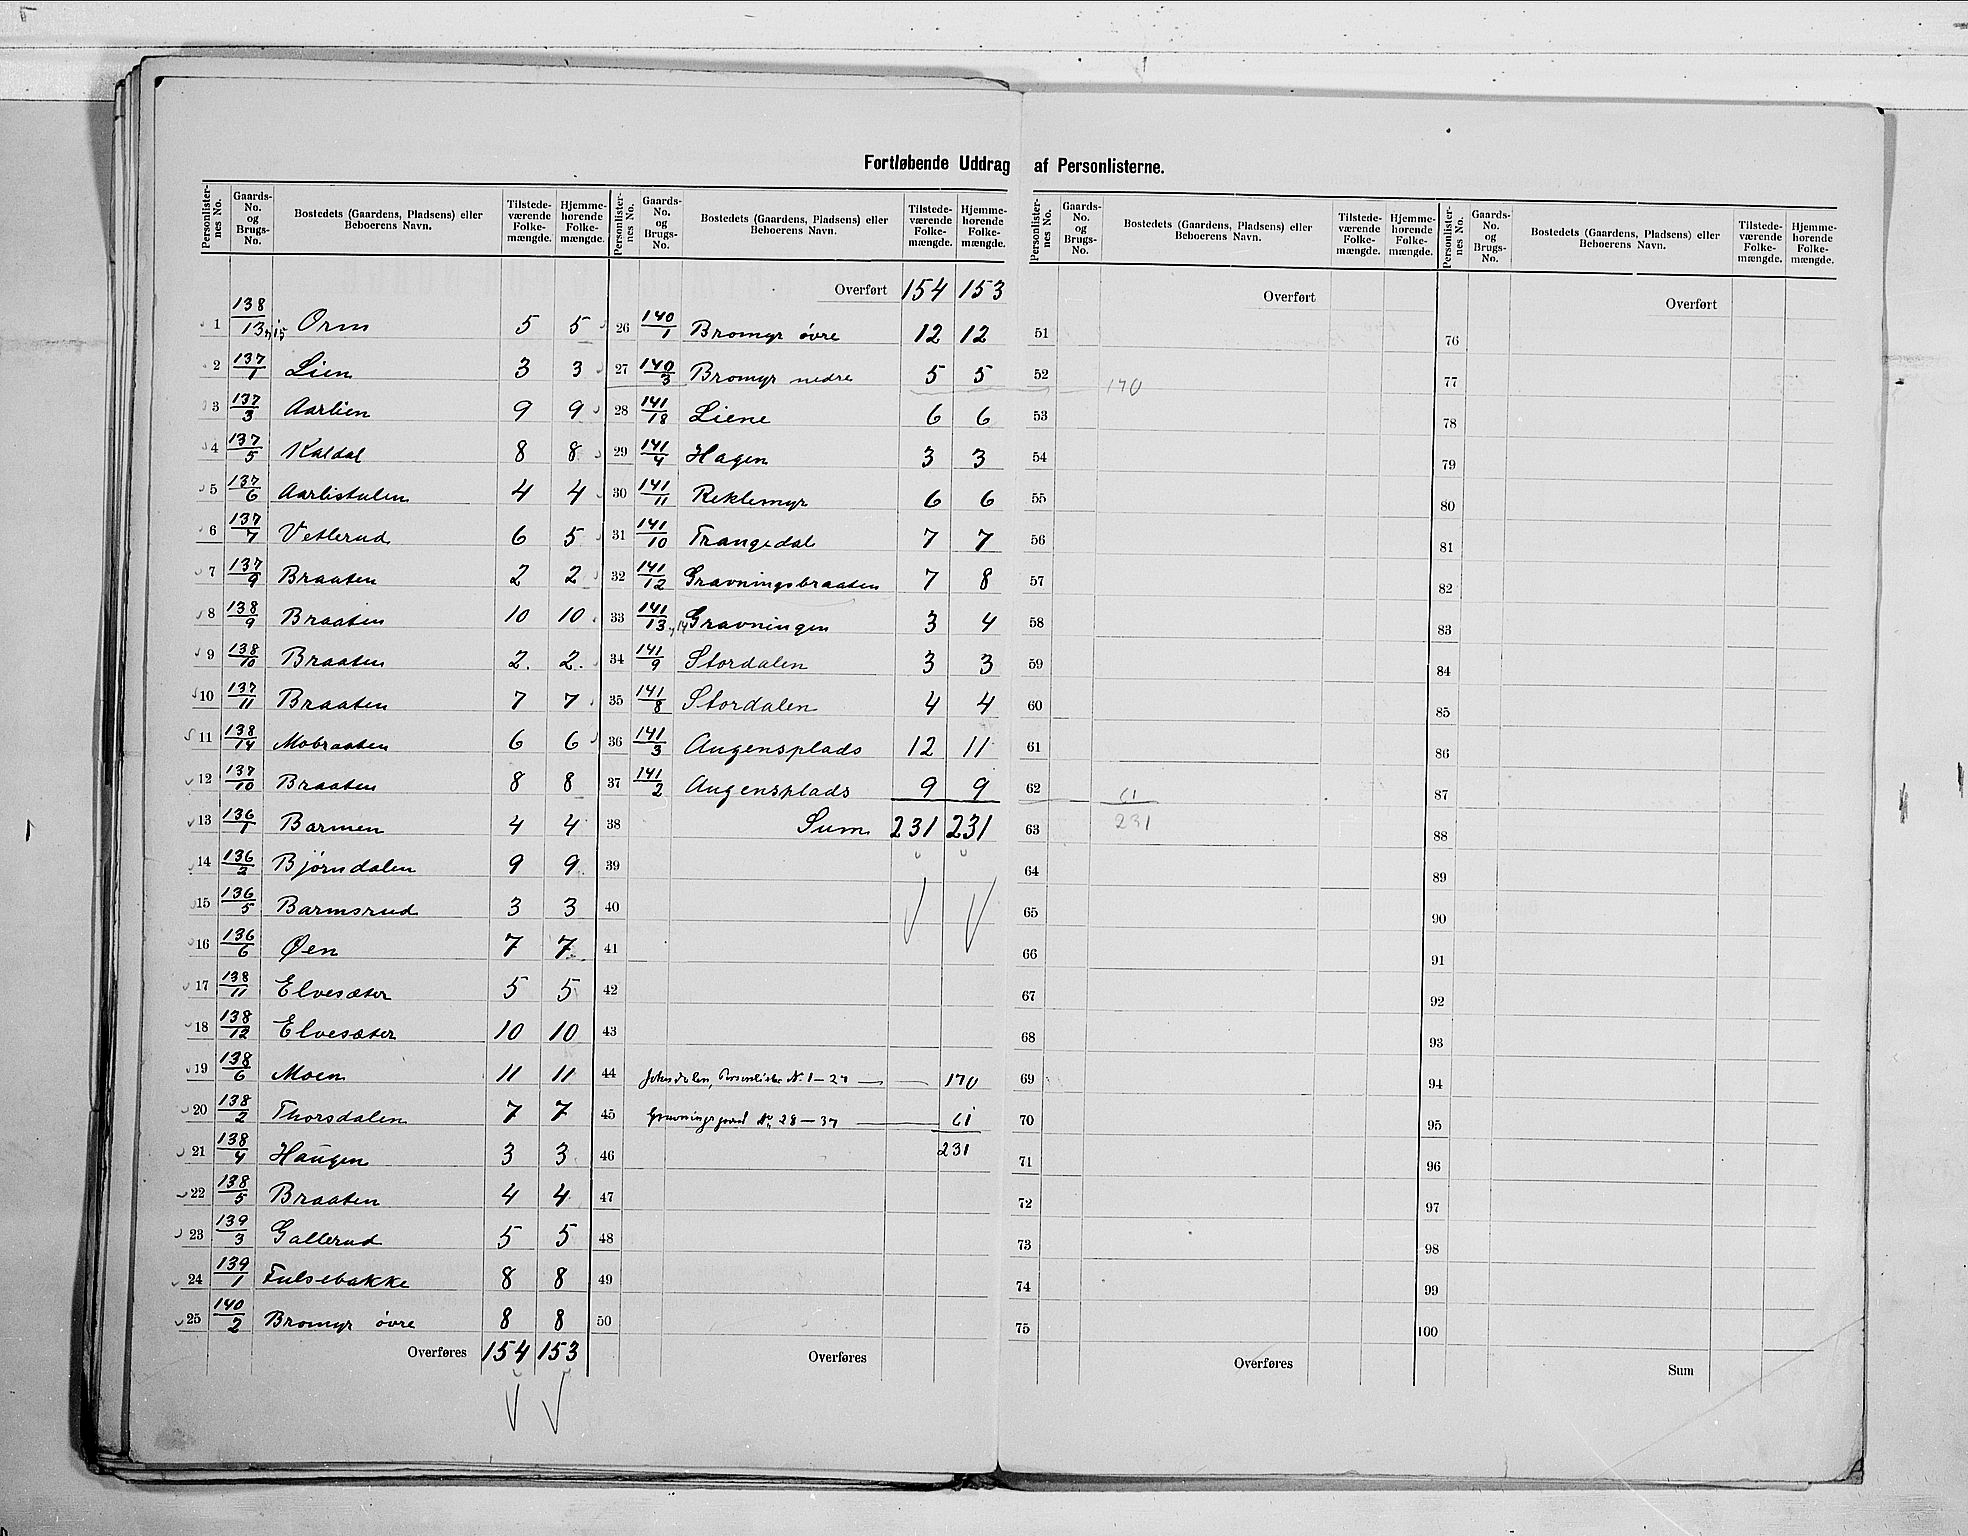 Fortløbende Uddrag af Personlisterne.
Personlister-nes No. | Gaards-No. og Brugs-No. | Bostedets (Gaardens, Pladsen) eller Beboerens Navn. | Tilstede-værende Folke-mængde. | Hjemme-hørende Folke-mængde.
1 | 138/13,15 | Orm | 5 | 5
2 | 137/1 | Lien | 3 | 3
3 | 137/3 | Aarlien | 9 | 9
4 | 137/5 | Kaldal | 8 | 8
5 | 137/6 | Aarlistulen | 4 | 4
6 | 137/7 | Vetlerud | 6 | 5
7 | 137/9 | Braaten | 2 | 2
8 | 138/9 | Braaten | 10 | 10
9 | 138/10 | Braaten | 2. | 2.
10 | 137/11 | Braaten | 7 | 7
11 | 138/14 | Mobraaten | 6 | 6
12 | 137/10 | Braaten | 8 | 8
13 | 136/1 | Barmen | 4 | 4
14 | 136/2 | Bjørndalen | 9 | 9
15 | 136/5 | Barmsrud | 3 | 3
16 | 136/6 | Øen | 7 | 7
17 | 138/11 | Elvesæter | 5 | 5
18 | 138/12 | Elvesæter | 10 | 10
19 | 138/6 | Moen | 11 | 11
20 | 138/2 | Thorsdalen | 7 | 7
21 | 138/4 | Haugen | 3 | 3
22 | 138/5 | Braaten | 4 | 4
23 | 139/3 | Gallerud | 5 | 5
24 | 139/1 | Fulsebakke | 8 | 8
25 | 140/2 | Bromyr øvre | 8 | 8
Overføres | 154 | 153
Personlister-nes No. | Gaards-No. og Brugs-No. | Bostedets (Gaardens, Pladsen) eller Beboerens Navn. | Tilstede-værende Folke-mængde. | Hjemme-hørende Folke-mængde.
Overført | 154 | 153
26 | 140/1 | Bromyr øvre | 12 | 12
27 | 140/3 | Bromyr nedre | 5 | 5
28 | 141/18 | Liene | 6 | 6
29 | 141/4 | Hagen | 3 | 3
30 | 141/11 | Reklemyr | 6 | 6
31 | 141/10 | Trangedal | 7 | 7
32 | 141/12 | Gravningsbraaten | 7 | 8
33 | 141/13,14 | Gravningen | 3 | 4
34 | 141/9 | Stordalen | 3 | 3
35 | 141/8 | Stordalen | 4 | 4
36 | 141/3 | Augensplads | 12 | 11
37 | 141/2 | Augensplads | 9 | 9
38 | Sum | 231 | 231
39
40
41
42
43
44 | Personlister N. 1-27 | 170
45 | N. 28-37 | 61
46 | 231
47
48
49
50
Overføres
Personlister-nes No. | Gaards-No. og Brugs-No. | Bostedets (Gaardens, Pladsen) eller Beboerens Navn. | Tilstede-værende Folke-mængde. | Hjemme-hørende Folke-mængde.
Overført
51
52 | 170
53
54
55
56
57
58
59
60
61
62 | 61
63 | 231
64
65
66
67
68
69
70
71
72
73
74
75
Overføres
Personlister-nes No. | Gaards-No. og Brugs-No. | Bostedets (Gaardens, Pladsen) eller Beboerens Navn. | Tilstede-værende Folke-mængde. | Hjemme-hørende Folke-mængde.
Overført
76
77
78
79
80
81
82
83
84
85
86
87
88
89
90
91
92
93
94
95
96
97
98
99
100
Sum